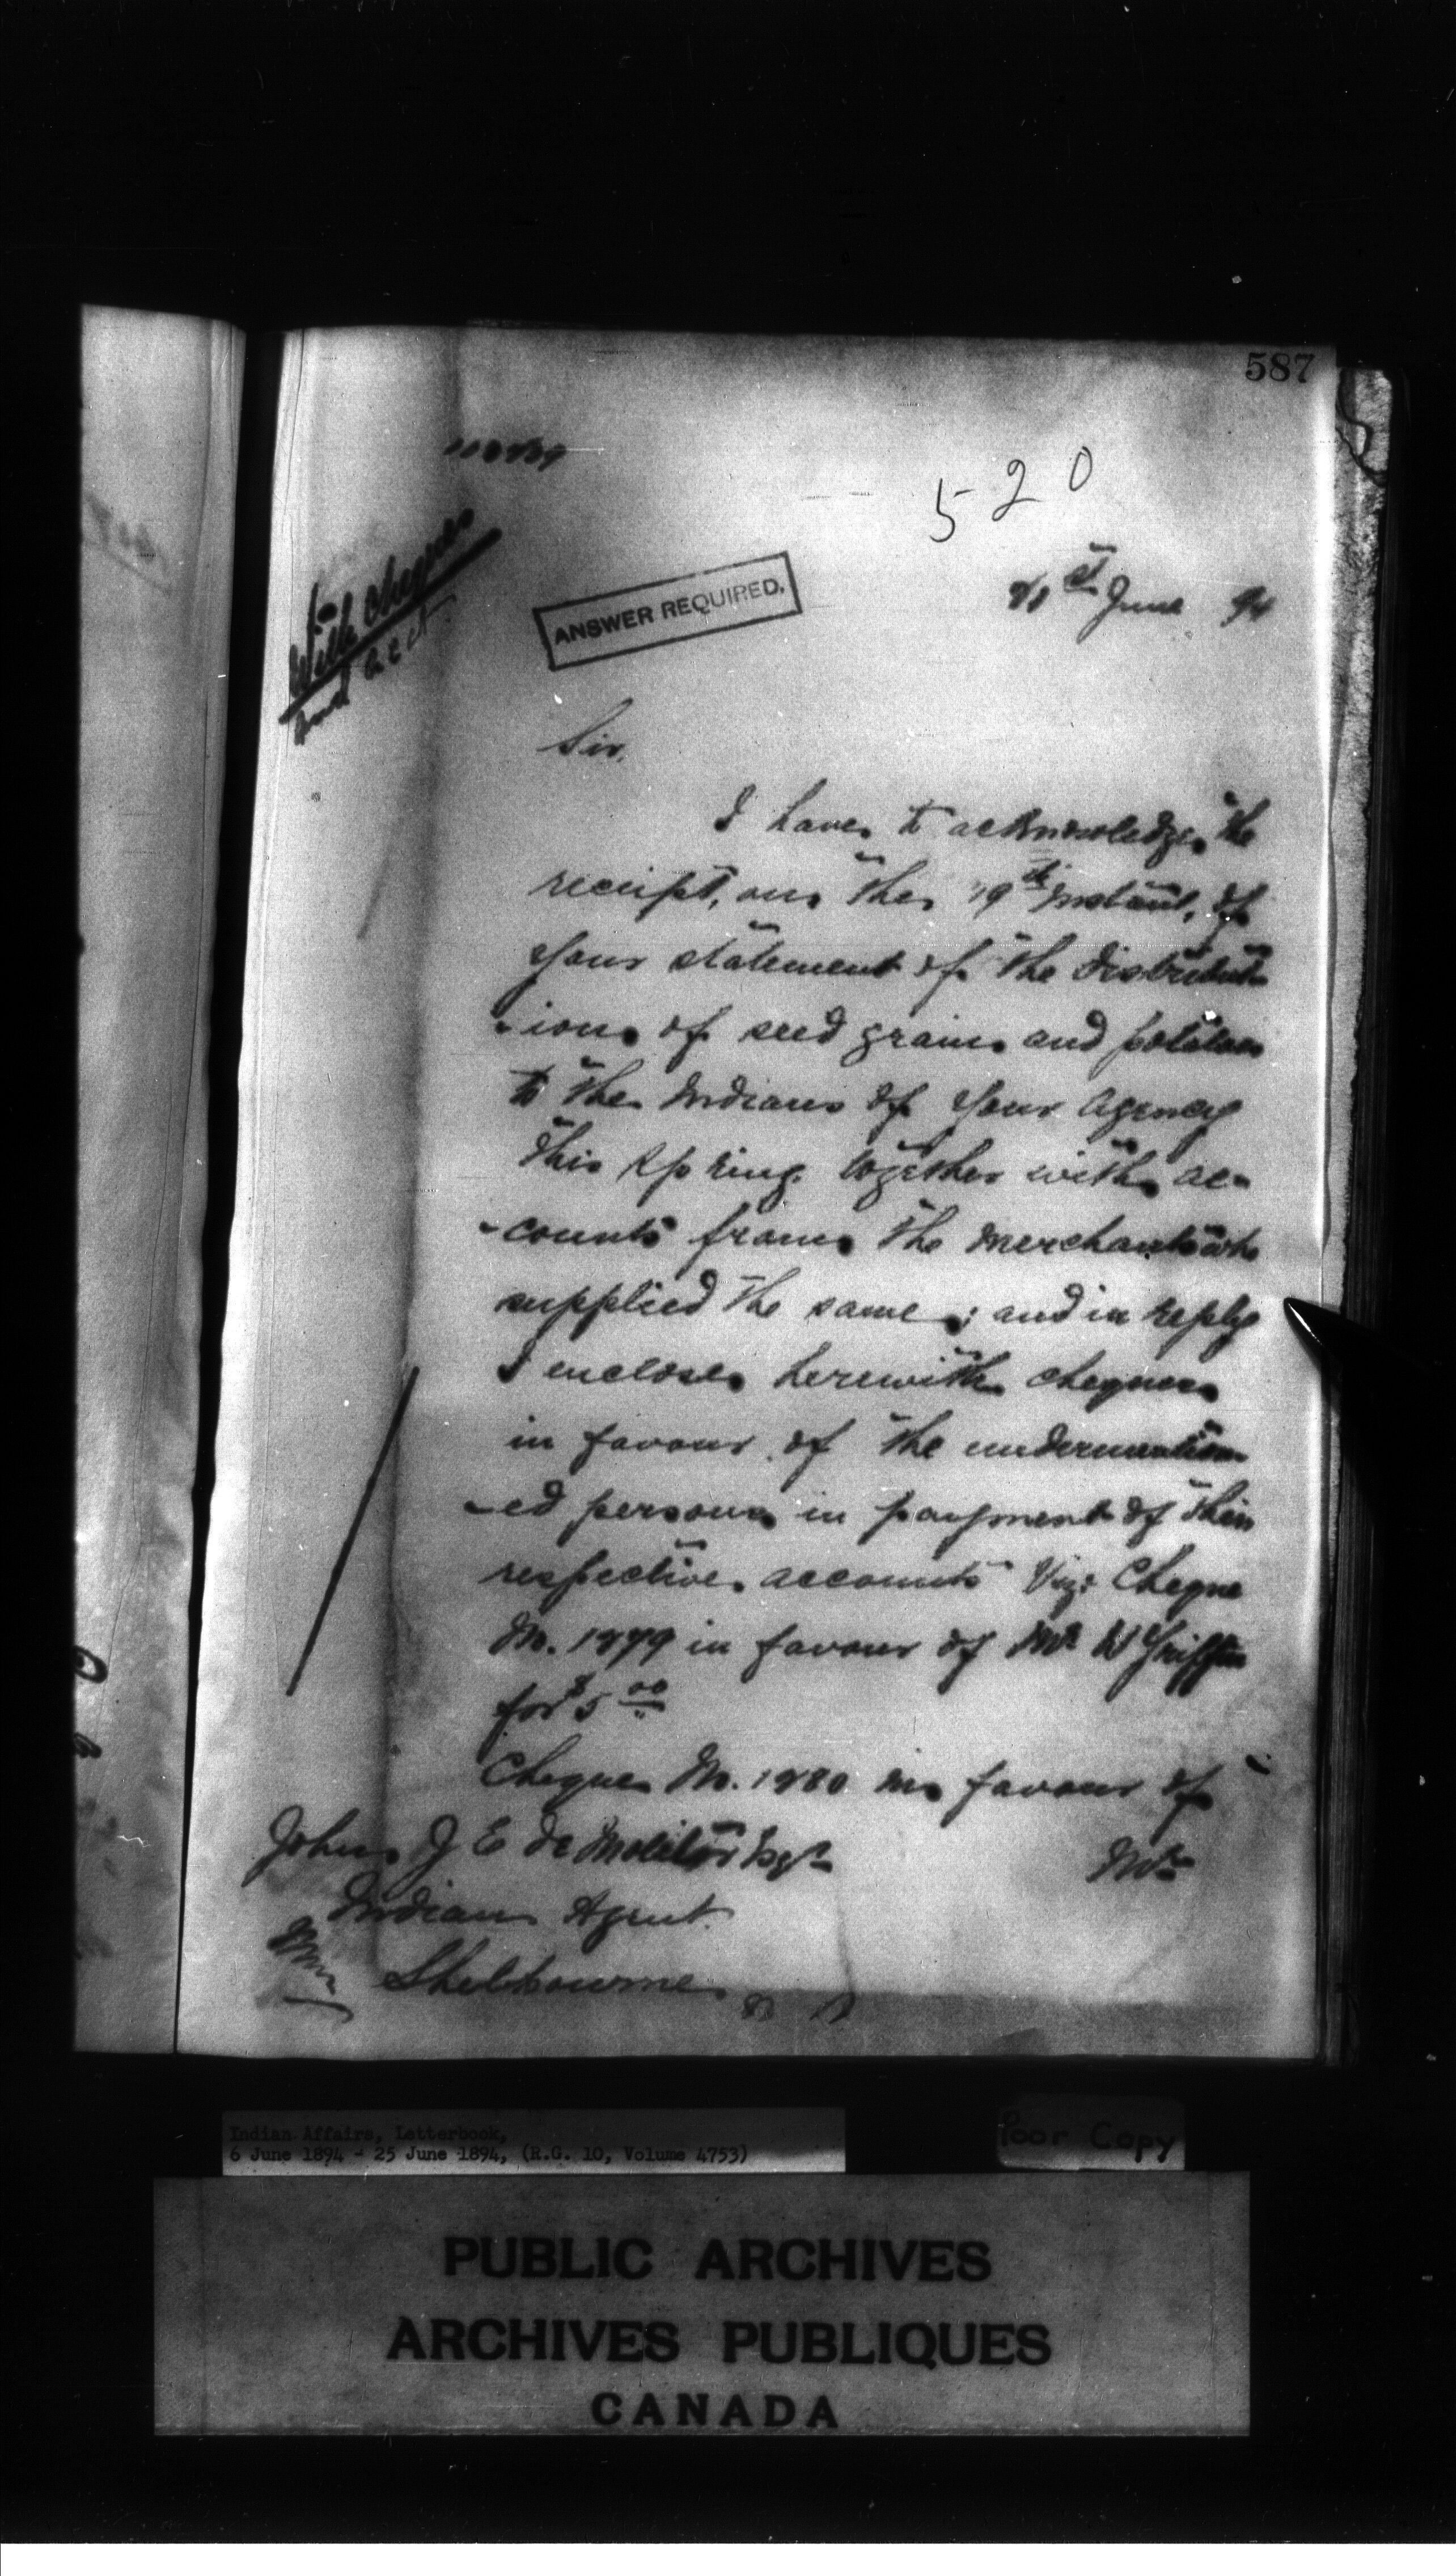 587
520
With cheques
and acct
ANSWER REQUIRED.
21st June 94
Sir,
I have to acknowledge the
receipt, on the 19th Instant, of
your statement of the distribut
-ion of seed grain and potatoes
to the Indians of your Agency
this spring, together with ac-
-counts from the merchants who
supplied the same; and in reply
I enclose herewith cheques
in favour of the undermention
-ed persons in payment of their
respective accounts Viz: Cheque
No. 1879 in favour of Mr W Griffin
for $5 00
Cheque No. 1880 in favour of
Mr
John J E de Molitor Esqr
Indian Agent
Shelbourne
Indian Affairs, Letterbook,
6 June 1894 - 25 June 1894, (R.G. 10, Volume 4753)
Poor Copy
PUBLIC ARCHIVES
ARCHIVES PUBLIQUES
CANADA